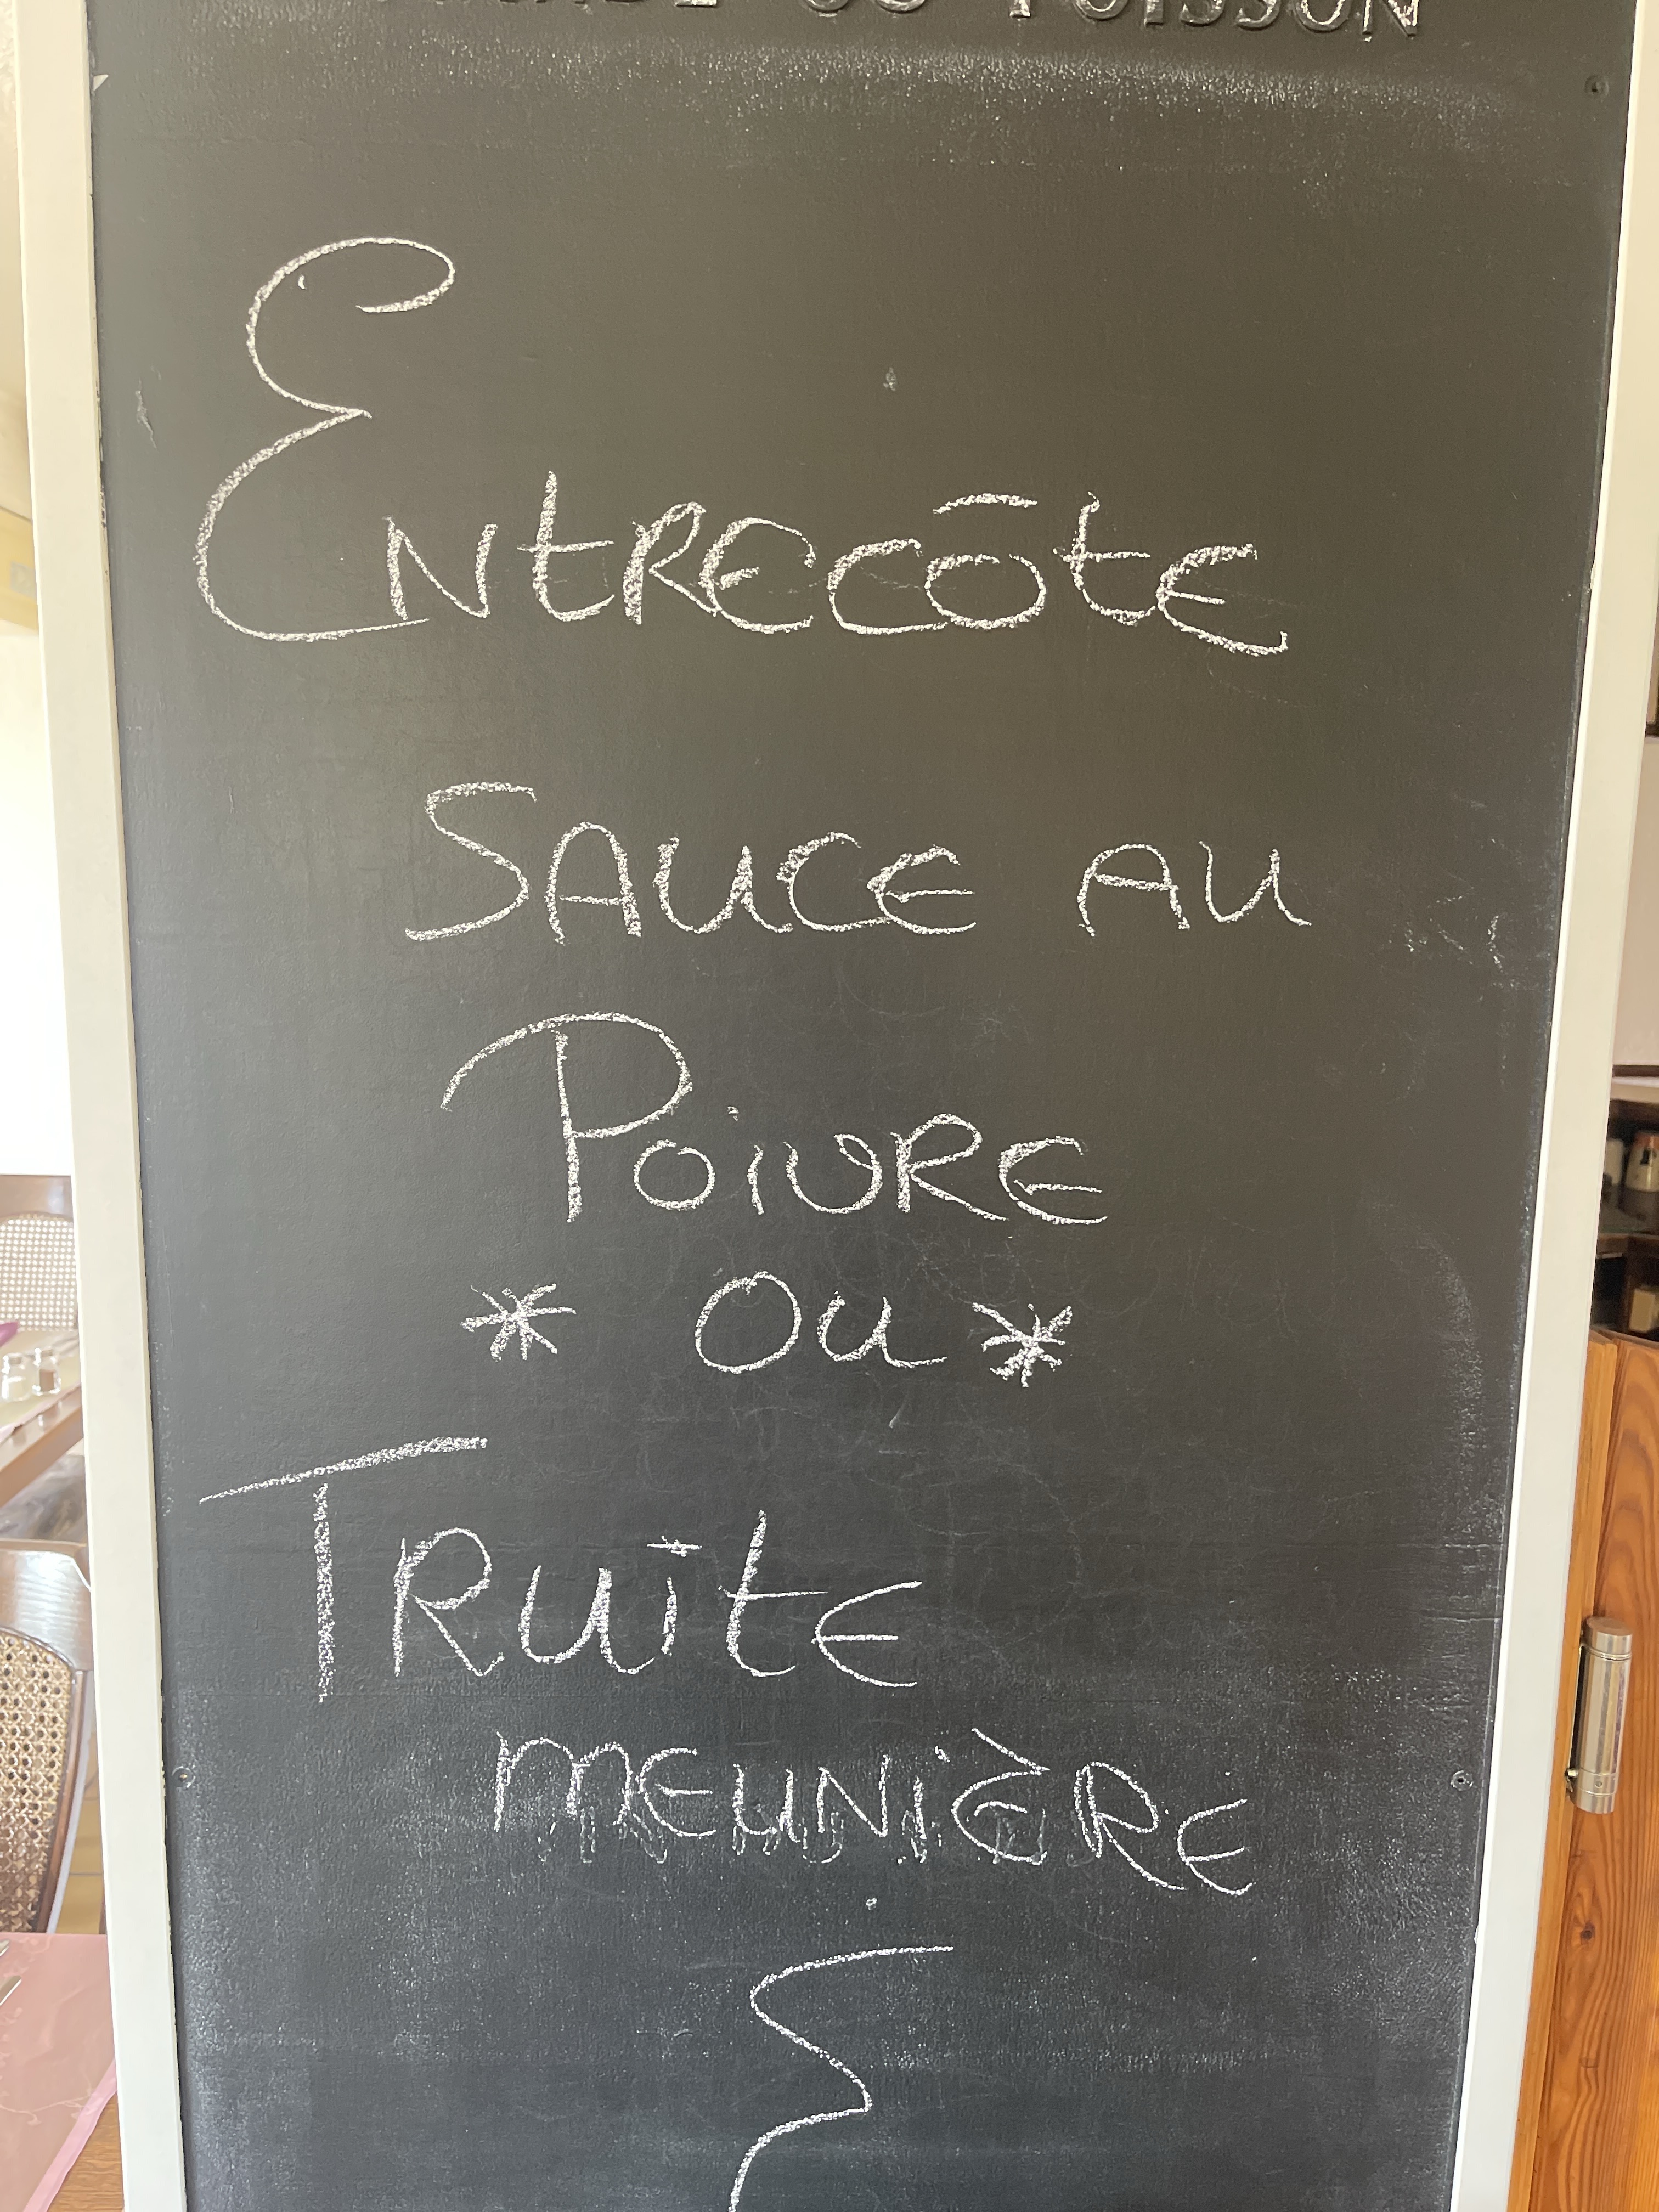 OU POISSON
Entrecôte
Sauce au
Poivre
* Ou *
Truite
meunière